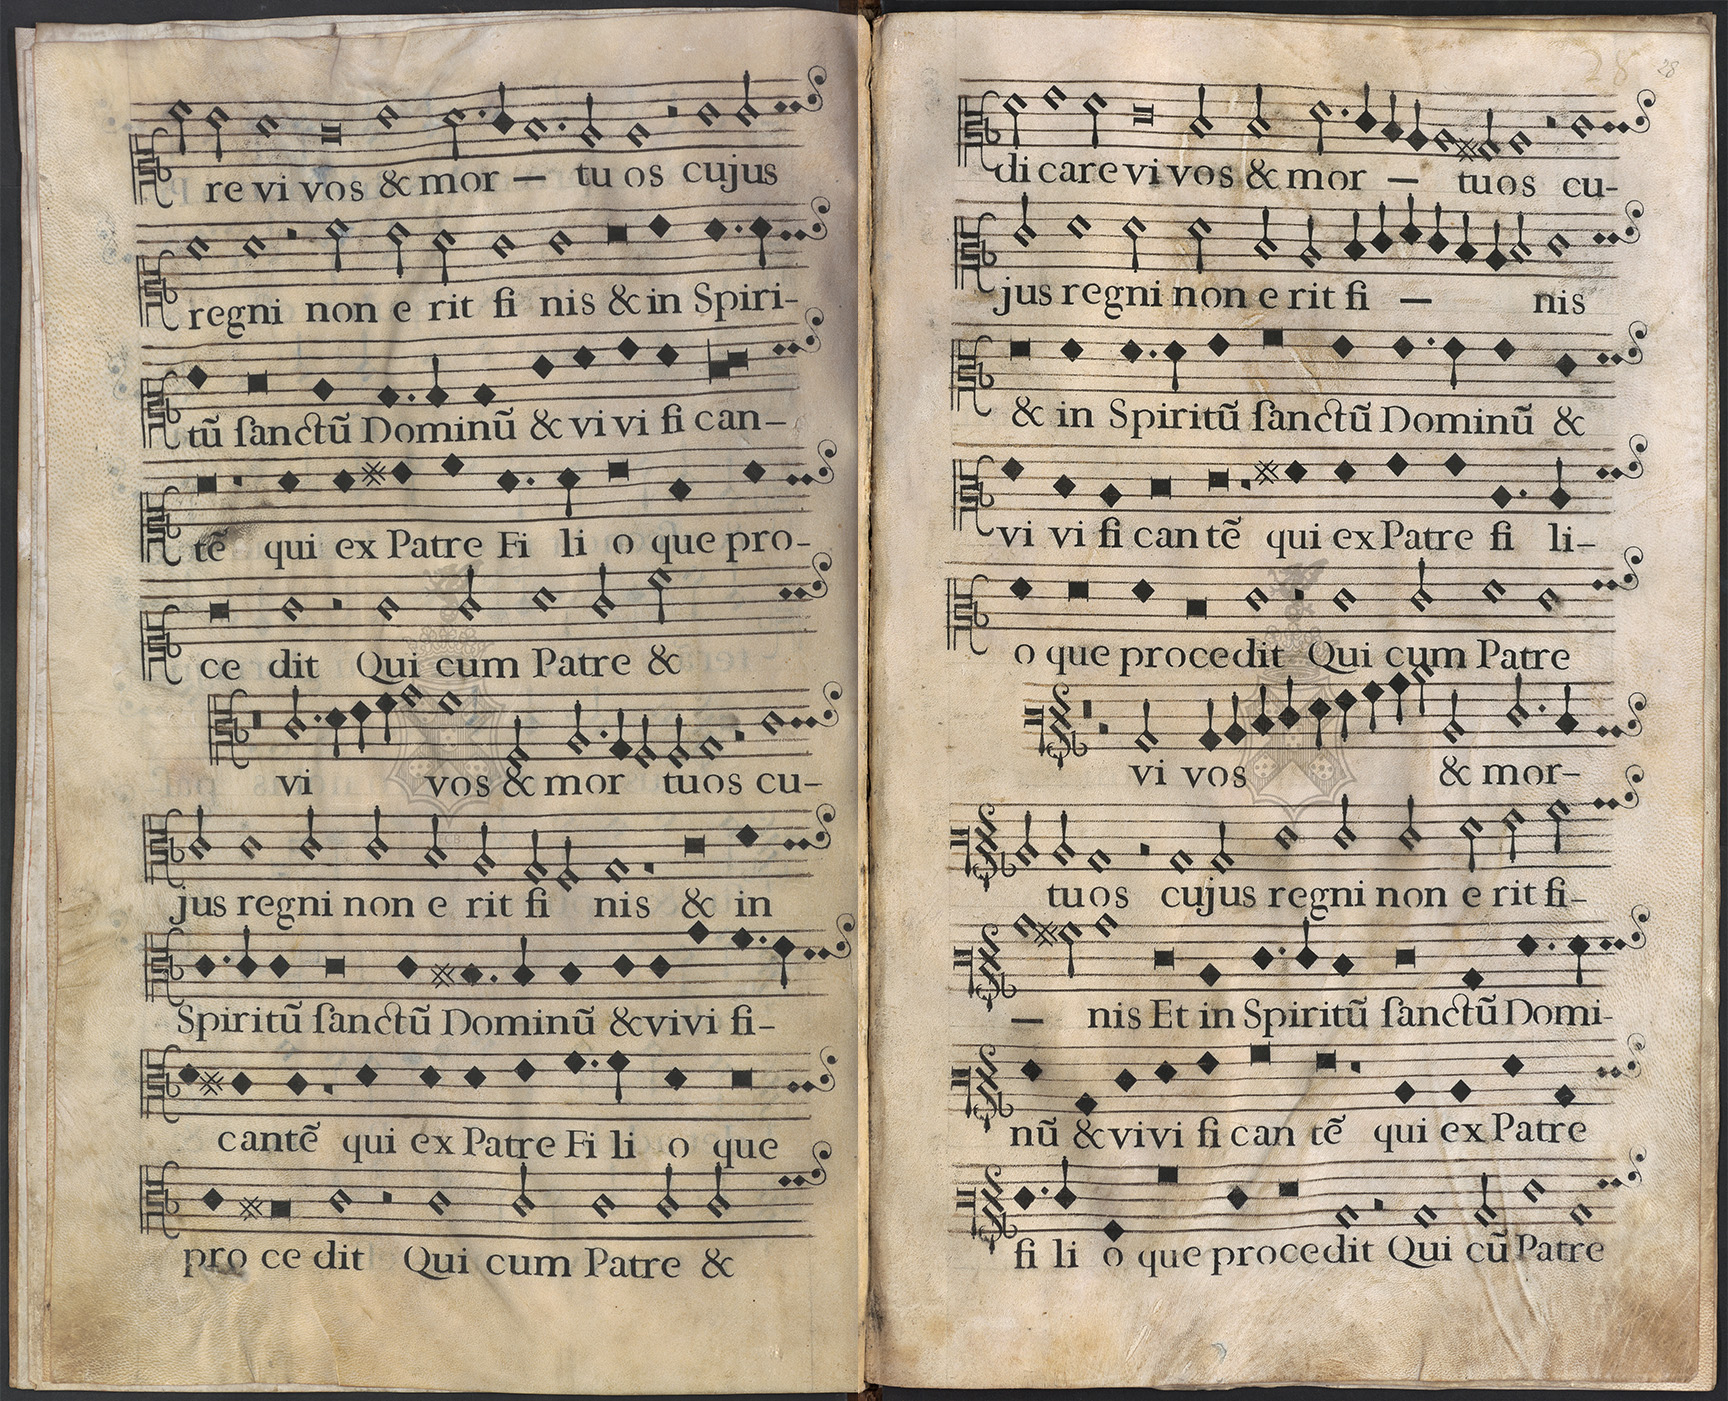 re vi vos & mor — tu os cujus
regni non e rit fi nis & in Spiri-
tũ ſanctũ Dominũ & vi vi fi can-
tẽ qui ex Patre Fi li o que pro-
ce dit Qui cum Patre &
vi vos & mor tuos cu-
jus regni non e rit fi nis & in
Spiritũ ſanctũ Dominũ & vivi fi-
cantẽ qui ex Patre Fi li o que
pro ce dit Qui cum Patre &
28
di care vi vos & mor — tuos cu-
jus regni non e rit fi — nis
& in Spiritũ ſanctũ Dominũ &
vi vi fi can tẽ qui ex Patre fi li-
o que procedit Qui cum Patre
vi vos & mor-
tuos cujus regni non e rit fi-
— nis Et in Spiritũ ſanctũ Domi-
nũ & vivi fi can tẽ qui ex Patre
fi li o que procedit Qui cũ Patre